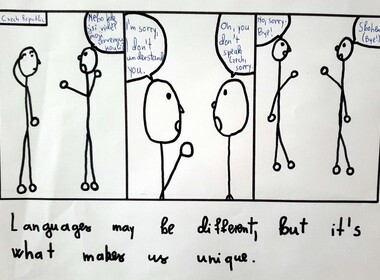 Czech Republic
Nebo kde
jsi viděl
moji
červenou
I'm sorry,
I don't
understand
you.
Oh, you
don't
speak
Czech,
sorry.
No, sorry.
Bye!
(Bye!)
Languages may be different, but it's
what makes us unique.